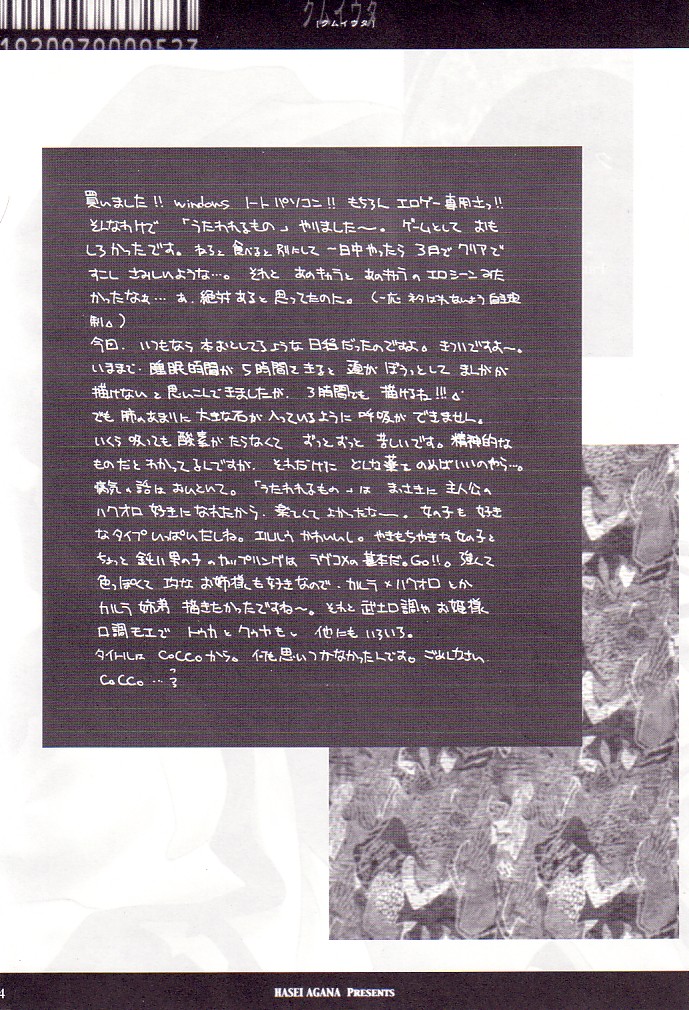 クムイウタ
[クムイウタ]
1920979009523
買いました!! windows ノートパソコン!! もちろん エロゲー専用さっ!!
そんなわけで 「うたわれるもの」 やりました〜。 ゲームとして おも
しろかったです。 ねると 食べると 別にして 一日中やったら 3日で クリアで
すこし さみしいような…。 それと あのキャラと あのキャラの エロシーンみた
かったなぁ… あ、絶対あると思ってたのに。 (一応 ネタばれないよう 自主規
制)
今回、 いつもなら 本おとしてるような 日程だったのですよ。 きついですよ〜。
いままで、 睡眠時間が 5時間できると 頭が ぼうっとして まんがが
描けない と 思いこんできましたが、 3時間でも 描けるね!!!
でも 肺のあまりに 大きな石が 入っているように 呼吸が できません。
いくら 吸っても 酸素が たらなくて ずっとずっと 苦しいです。 精神的な
ものだと わかってるんですが、 それだけに どんな薬を のめばいいのやら…。
病気の話は おいといて。 「うたわれるもの」は まっさきに 主人公の
ハクオロ 好きに なれたから、 楽しくて よかったなー。 女の子も 好き
なタイプ いっぱいだしね。 エルルゥ かわいいし。 やきもちやきな 女の子と
ちょっと 鈍い 男の子 のカップリングは ラヴコメの 基本だ。Go!!。 強くて
色っぽくて 巧みな お姉様も好きなので、 カルラ×ハクオロ とか
カルラ 姉弟 描きたかったですね〜。 それと 武士口調や お姫様
口調モエで トウカ と クゥヤも。 他にも いろいろ。
タイトルは coccoから。 何も思いつかなかったんです。 ごめんなさい
cocco …
4
HASEI AGANA PRESENTS